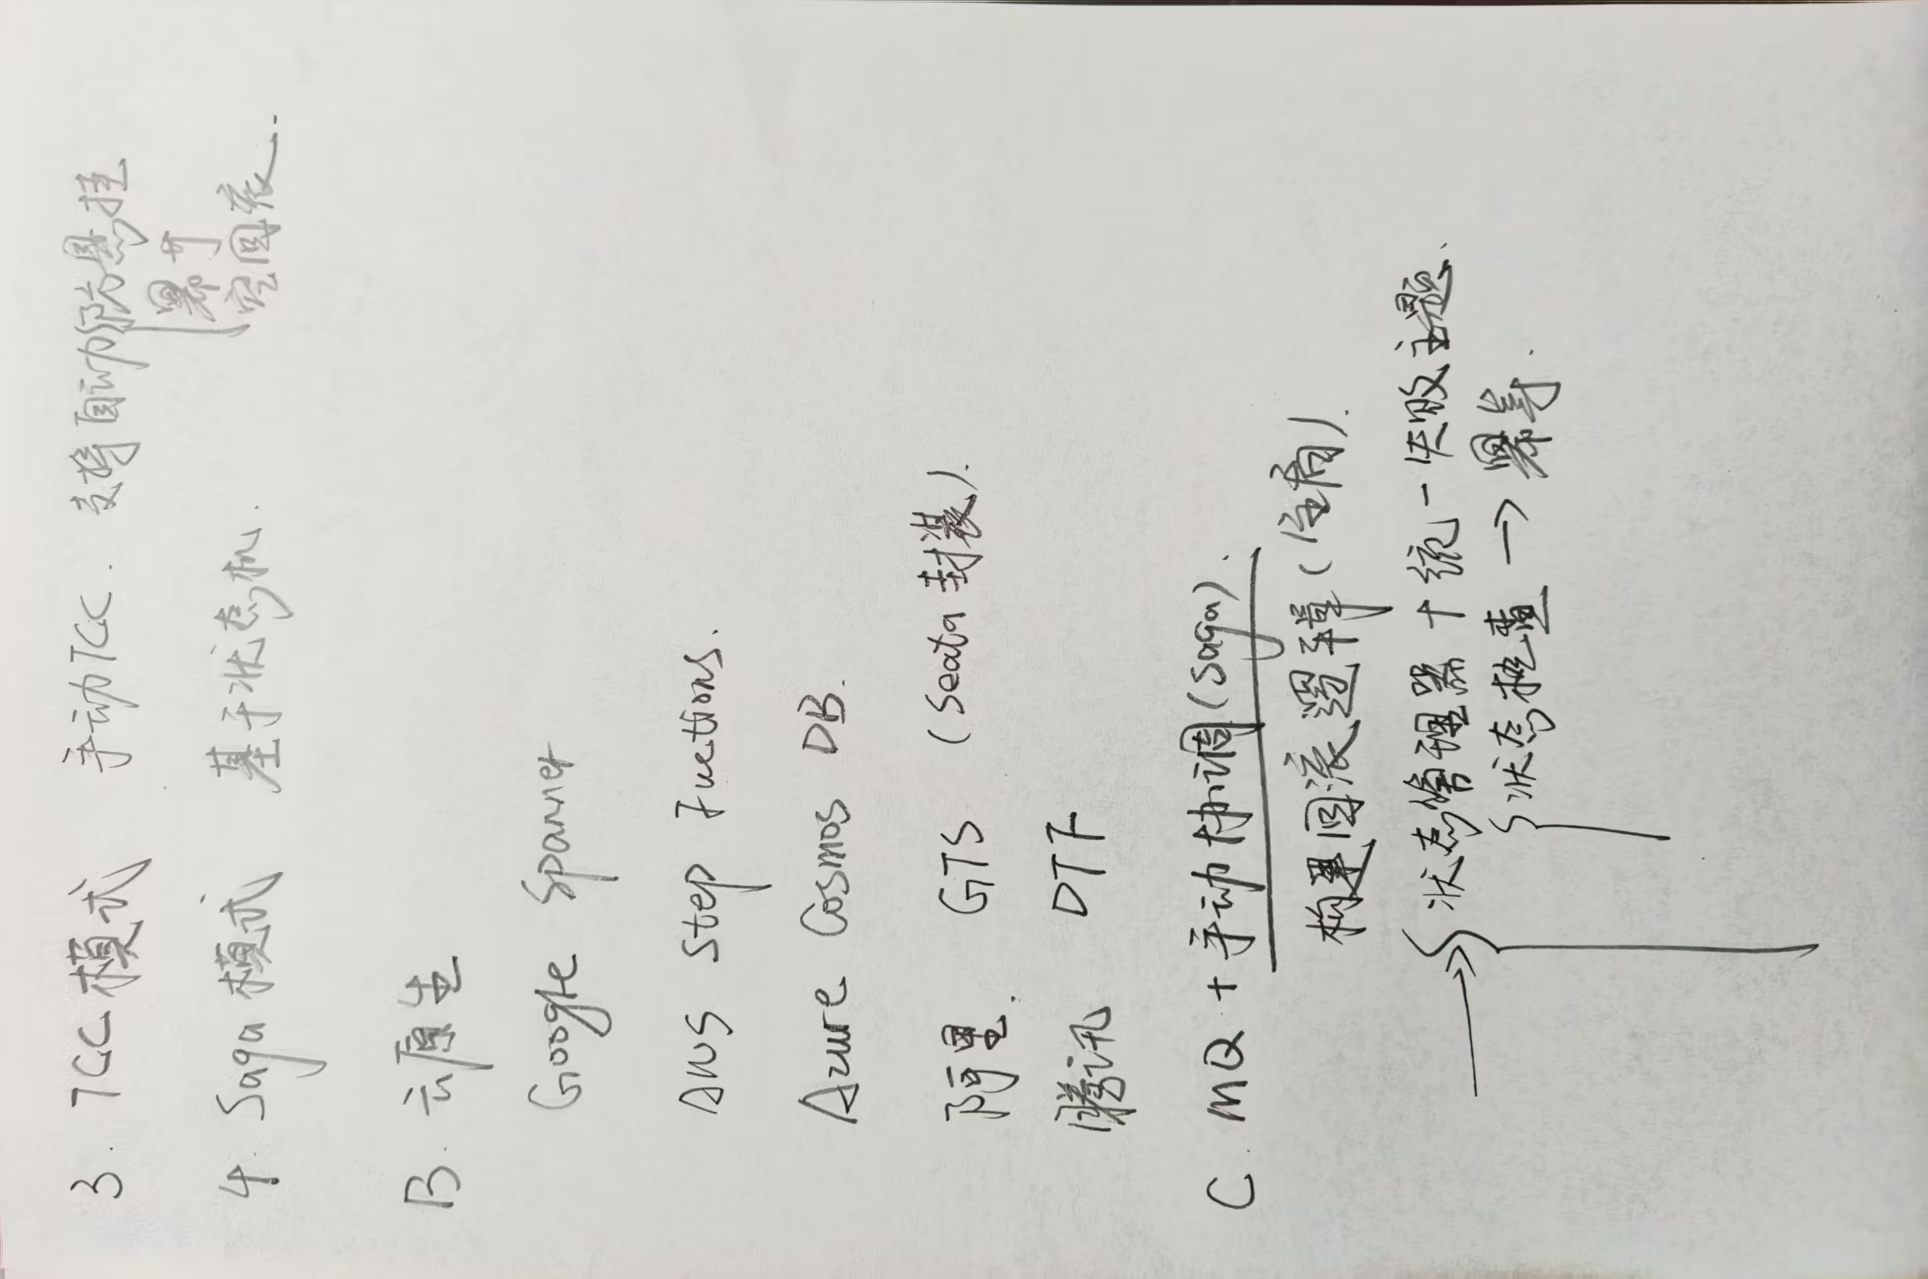 3. TCC模式 手动TCC. 支持自动防悬挂
幂
空回滚.
4. Saga模式 基于状态机.
B. 云原生
Google Spanner
AWS Step Fuctions.
Azure Cosmos DB.
阿里. GTS (Seata封装).
腾讯 DTF
C. MQ + 手动协调(Saga).
构建回滚逻辑(全局).
状态管理器 + 统一失败主题.
状态检查 → 幂等.